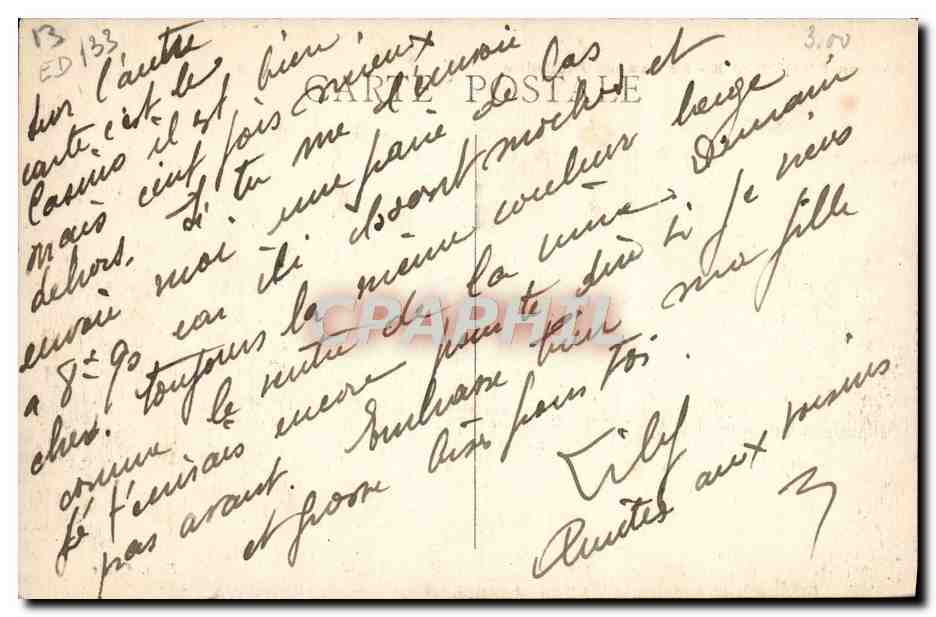 13
ED 133
3.00
CARTE POSTALE
sur l'autre
carte c'est le
Casino il est bien,
mais cent fois mieux
dehors. Si tu me
envoie moi une paire de bas
a 8f 90 car ici ils seront moches et
cher. toujours la même couleur beige
comme le de la mine. Demain
je t'écrirais encore pour te dire si je
pas avant. Embrasse bien ma fille
et grosse bise pour toi.
Lily
Amitiés aux voisins
CPAPHIL